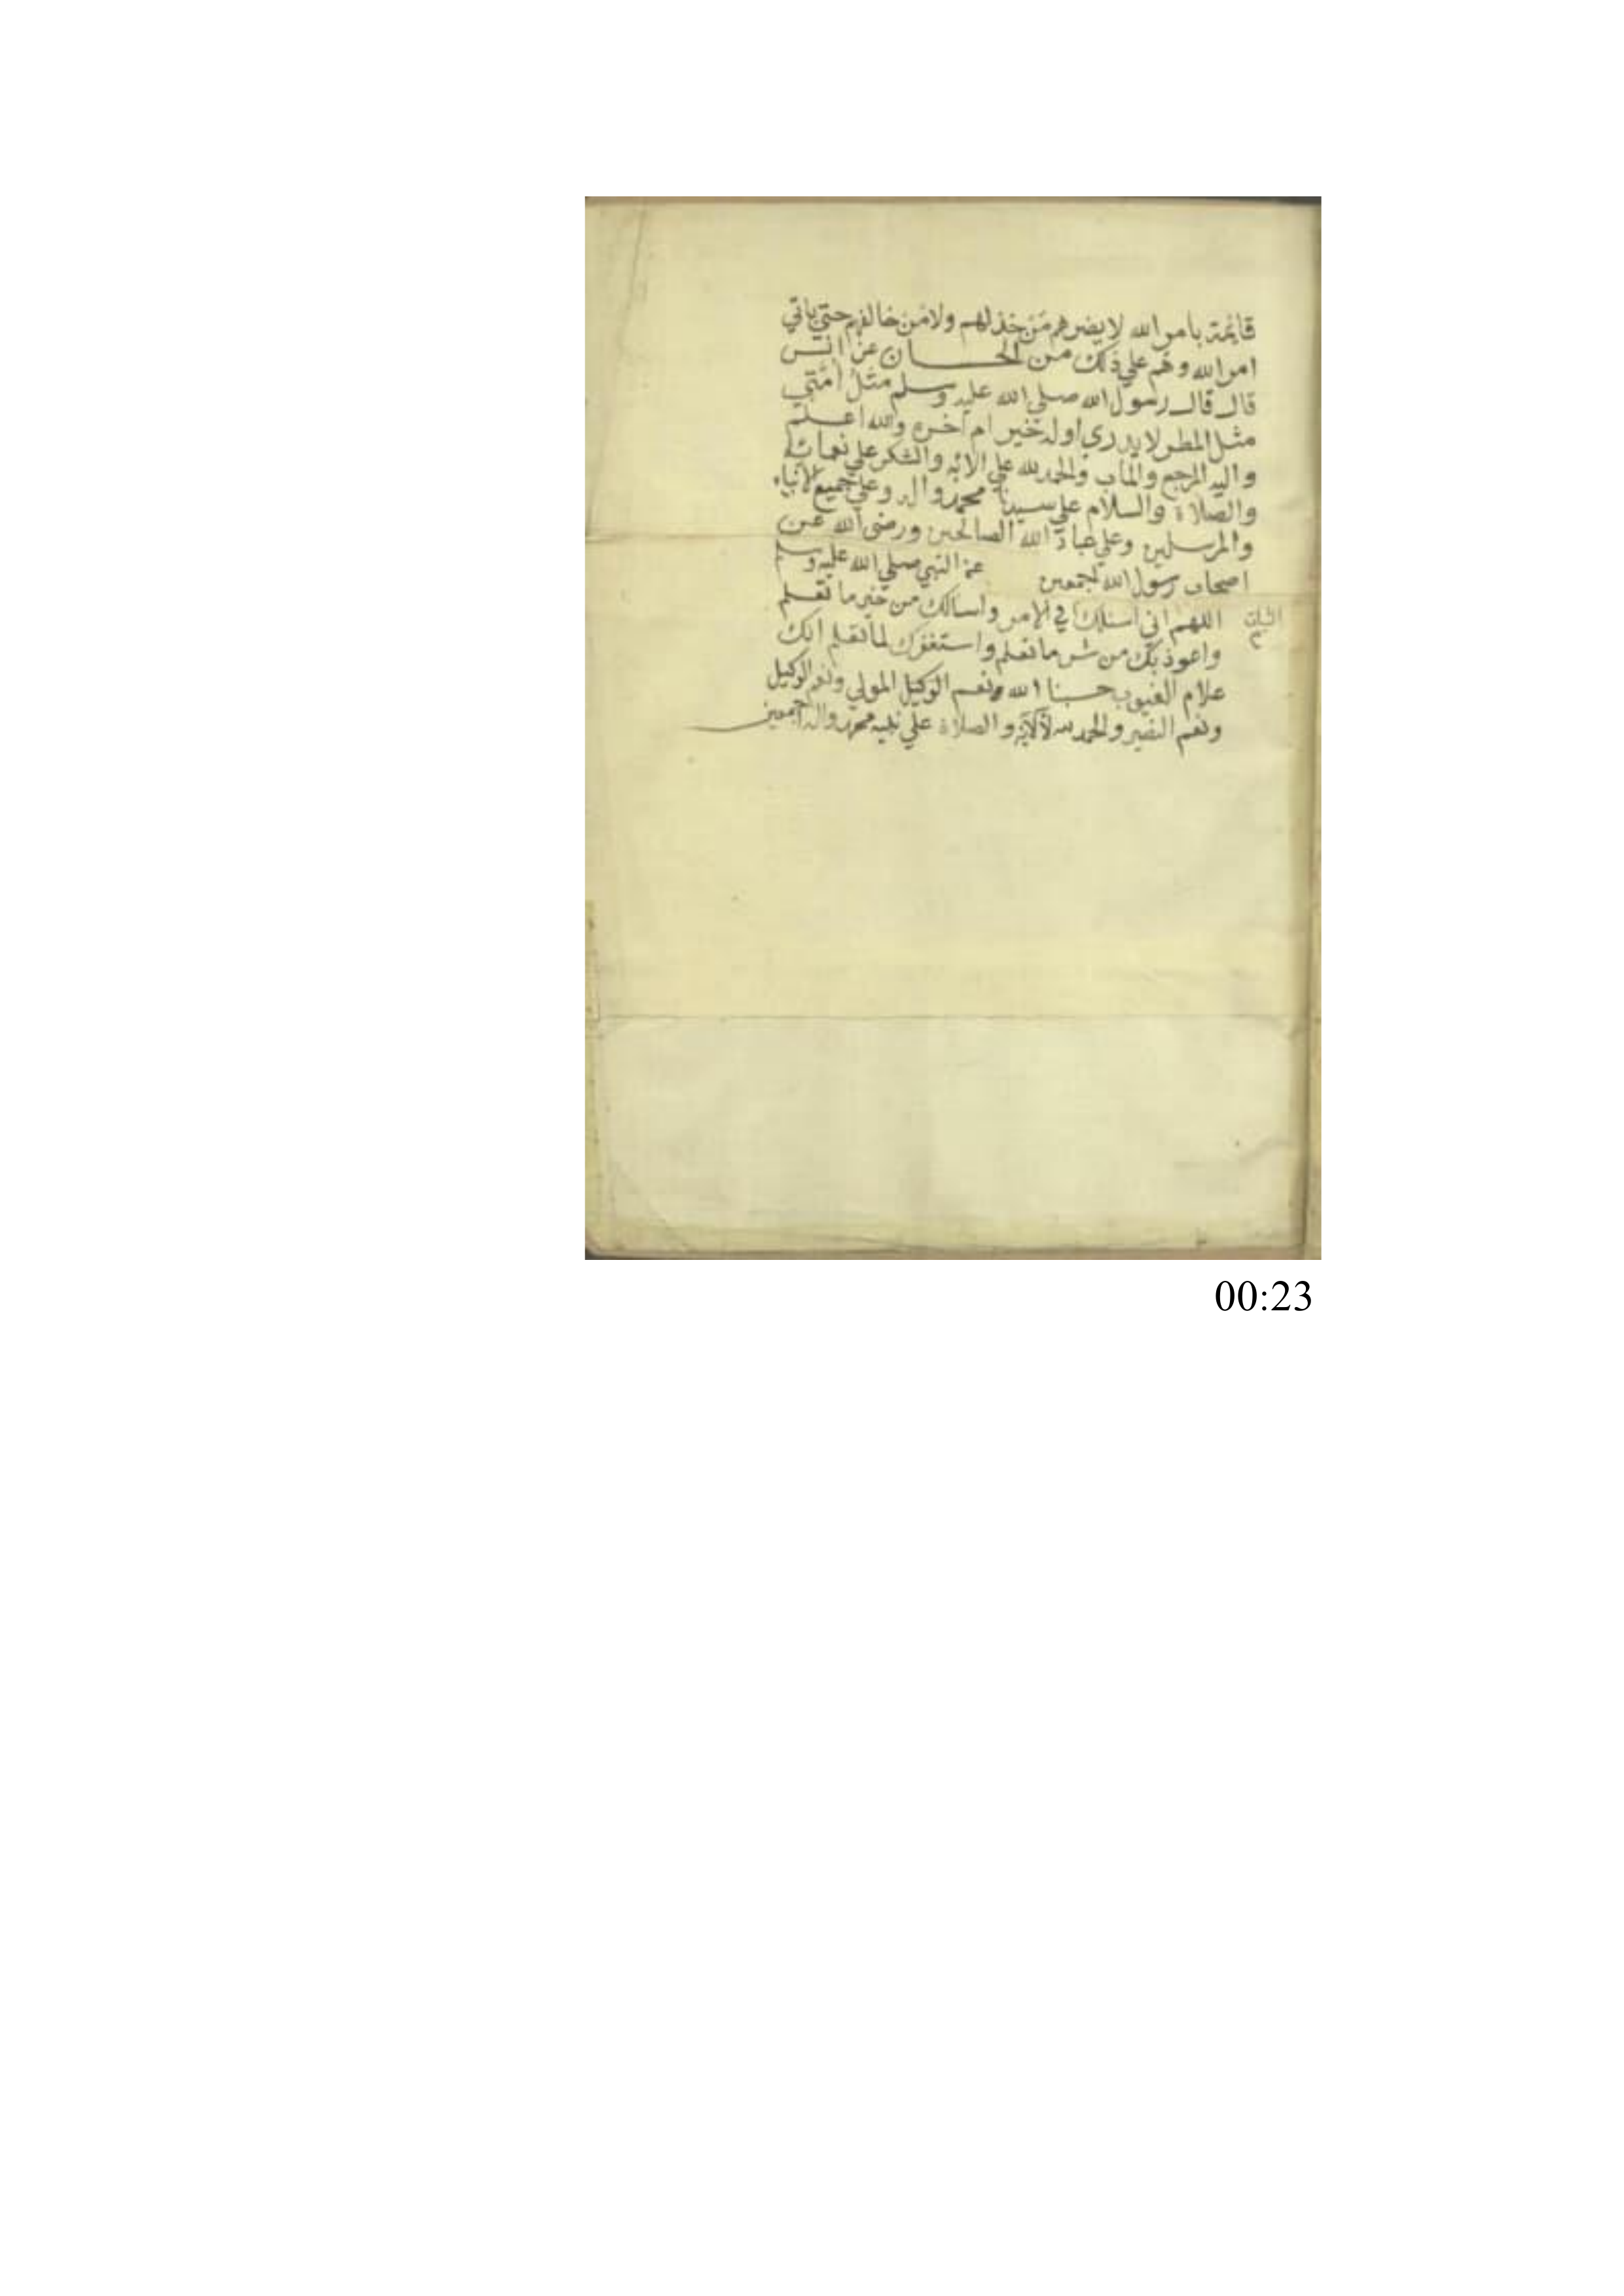 قائمة بامر الله لا يضرهم من خذلهم ولا من خالفهم حتي ياتي
امر الله وهم علي ذلك من الحسان عن انس
قال قال رسول الله صلي الله عليه وسلم مثل امتي
مثل المطر لا يدري اوله خير ام اخره والله اعلم
واليه المرجع والماب والحمد لله علي الائه والشكر علي نعمائه
والصلاة والسلام علي سيدنا محمد واله وعلي جميع الانبياء
والمرسلين وعلي عباد الله الصالحين ورضي الله عن
اصحاب رسول الله اجمعين عن النبي صلي الله عليه وسلم
اللهم اني اسئلك في الامر واسالك من خير ما تعلم
الثبات
واعوذ بك من شر ما تعلم واستغفرك لما تعلم انك
علام الغيوب حسبنا الله ونعم الوكيل المولي ونعم الوكيل
ونعم النصير والحمد لله لآلآئه والصلاة علي نبيه محمد واله اجمعين
00:23